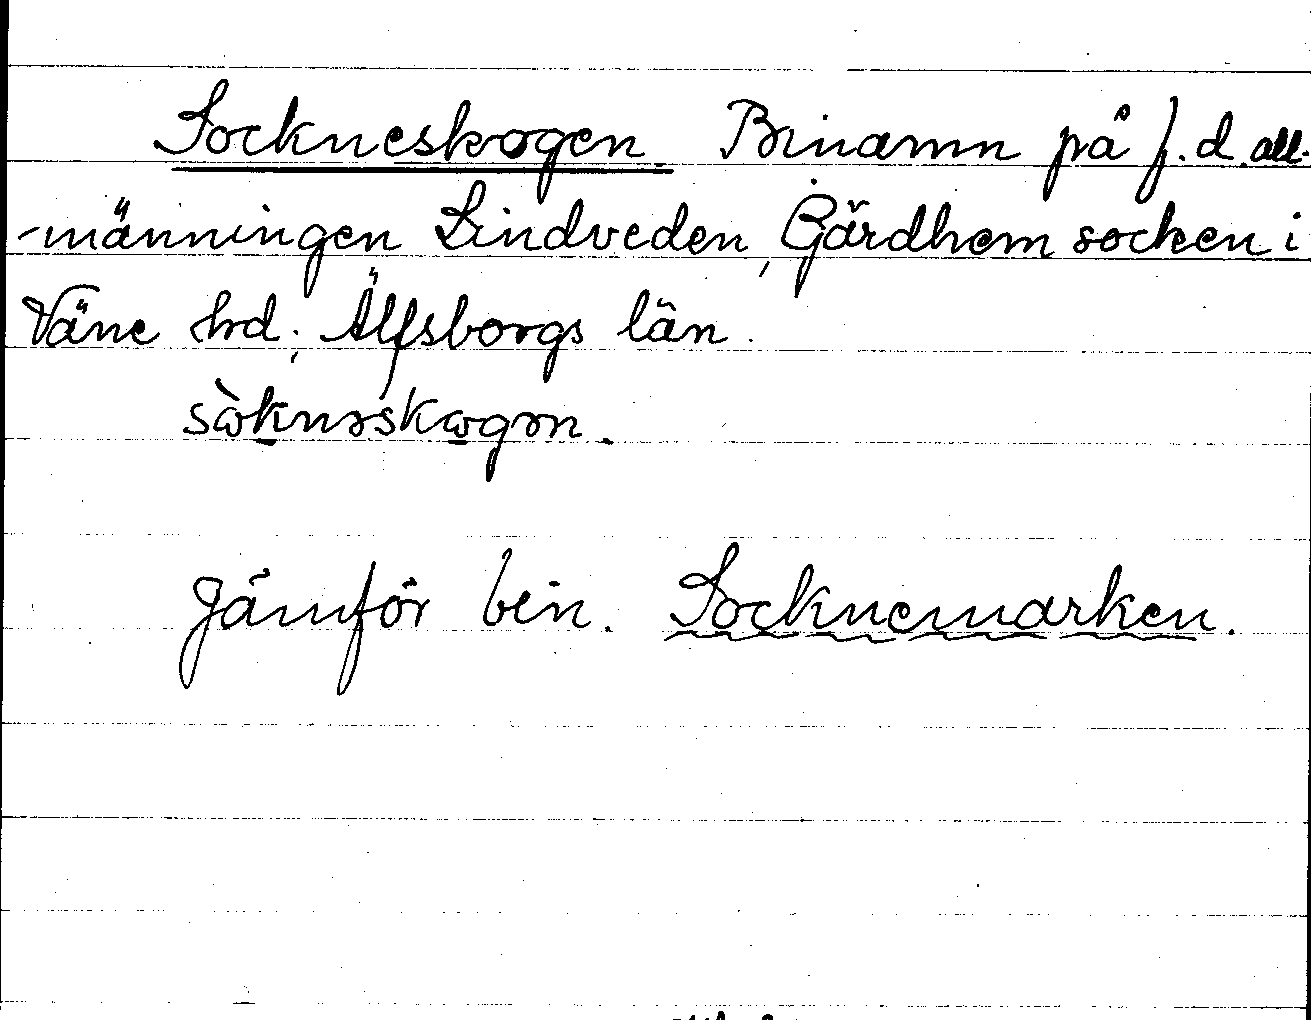 Sockneskogen. Binamn på f. d. all-
-männingen Lindveden, Gärdhem socken i
Väne hrd; Älfsborgs län.
sòknəskogən.
Jämför bin. Socknemarken.